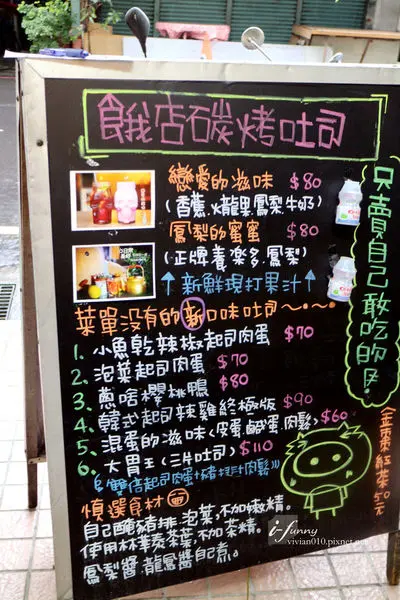 餓店碳烤吐司
戀愛的滋味 $80
(香蕉.火龍果.鳳梨.牛奶)
鳳梨的蜜蜜 $80
(正牌養樂多.鳳梨)
↑新鮮現打果汁↑
只賣自己敢吃的
菜單沒有的新口味吐司~
1. 小魚乾辣椒起司肉蛋 $70
2. 泡菜起司肉蛋 $70
3. 蔥啥櫻桃鴨 $80
4. 韓式起司辣雞終極版 $90
5. 混蛋的滋味(皮蛋.鹹蛋.肉鬆) $60
6. 大胃王(三片吐司) $110
(雙倍起司肉蛋+豬排+肉鬆)
金棗紅茶 50元
慎選食材
自己醃豬排.泡菜,不加嫩精。
使用林華泰茶葉,不加茶精。
鳳梨醬.龍鳳醬自煮。
i-funny
vivian010.pixnet.net